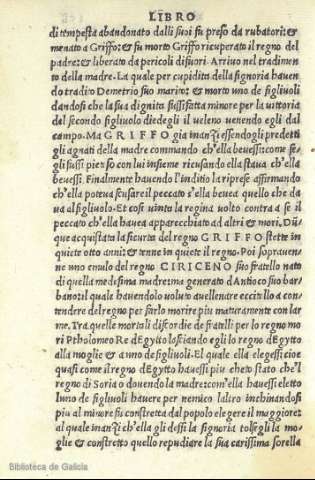 LIBRO
di tempesta abandonato dalli suoi fu preso da rubatori: &
menato a Griffo: & fu morto Griffo ricuperato il regno del
padre: & liberato da pericoli di fuori. Arrivo nel tradimen
to della madre. La quale per cupidita della signoria haven
do tradito Demetrio suo marito: & morto uno de figliuoli
dandosi che la sua dignita fussi fatta minore per la vittoria
del secondo figliuolo diedegli il veleno venendo egli dal
campo. Ma GRIFFO gia inanzi essendogli predetti
gli agnati della madre commando ch'ella bevessi: come se
gli fussi pietoso con lui insieme ricusando ella stava ch'ella
bevessi. Finalmente havendo l'inditio la riprese affirmando
ch'ella poteva scusare il peccato s'ella beuea quello che da
va al figliuolo. Et cosi vinta la regina volto contra a se il
peccato ch'ella havea apparecchiato ad altri & mori. Dũ
que acquistata la sicurta del regno GRIFFO stette in
quiete otto anni: & tenne in quiete il regno. Poi sopraven
ne uno emulo del regno CIRICENO suo fratello nato
di quella medesima madre: ma generato d'Antioco suo bar
bano: il quale havendolo voluto avellenare eccitollo a con
tendere del regno per farlo morire piu maturamente con lar
me. Tra quelle mortali discordie de fratelli per lo regno mo
ri Ptholomeo Re d'Egytto lasciando egli lo regno d'Egytto
alla moglie & a uno de figliuoli. El quale ella elegessi: cioe
quasi come il regno d'Egytto havessi piu cheto stato che'l
regno di Soria o dovendo la madre: com'ella havessi eletto
l'uno de figliuoli havere per nemico laltro inchinandosi
piu al minore fu constretta dal popolo elegere il maggiore:
al quale inanzi ch'ella gli dessi la signoria tolsegli la mo
glie & constretto quello repudiare la sua carissima sorella
Biblioteca de Galicia